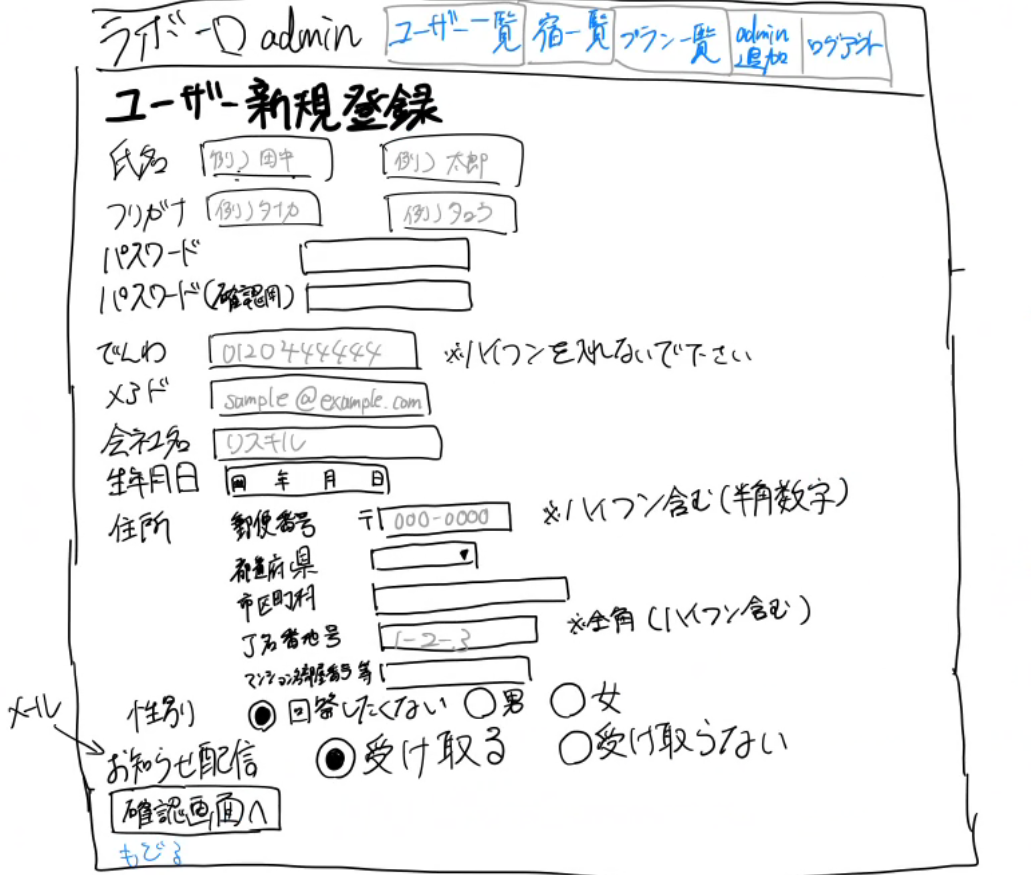 ラボーロ admin ユーザー一覧 宿一覧 プラン一覧 admin追加 ログアウト
ユーザー新規登録
氏名 例)田中 例)太郎
フリガナ 例)タナカ 例)タロウ
パスワード
パスワード(確認用)
でんわ 0120444444 ※ハイフンを入れないで下さい
メアド sample@example.com
会社名 リスキル
生年月日 年 月 日
住所 郵便番号 〒 000-0000 ※ハイフン含む(半角数字)
都道府県
市区町村
丁名番地号 1-2-3 ※全角(ハイフン含む)
マンション名部屋番号等
性別 回答したくない 男 女
メール
お知らせ配信 受け取る 受け取らない
確認画面へ
もどる